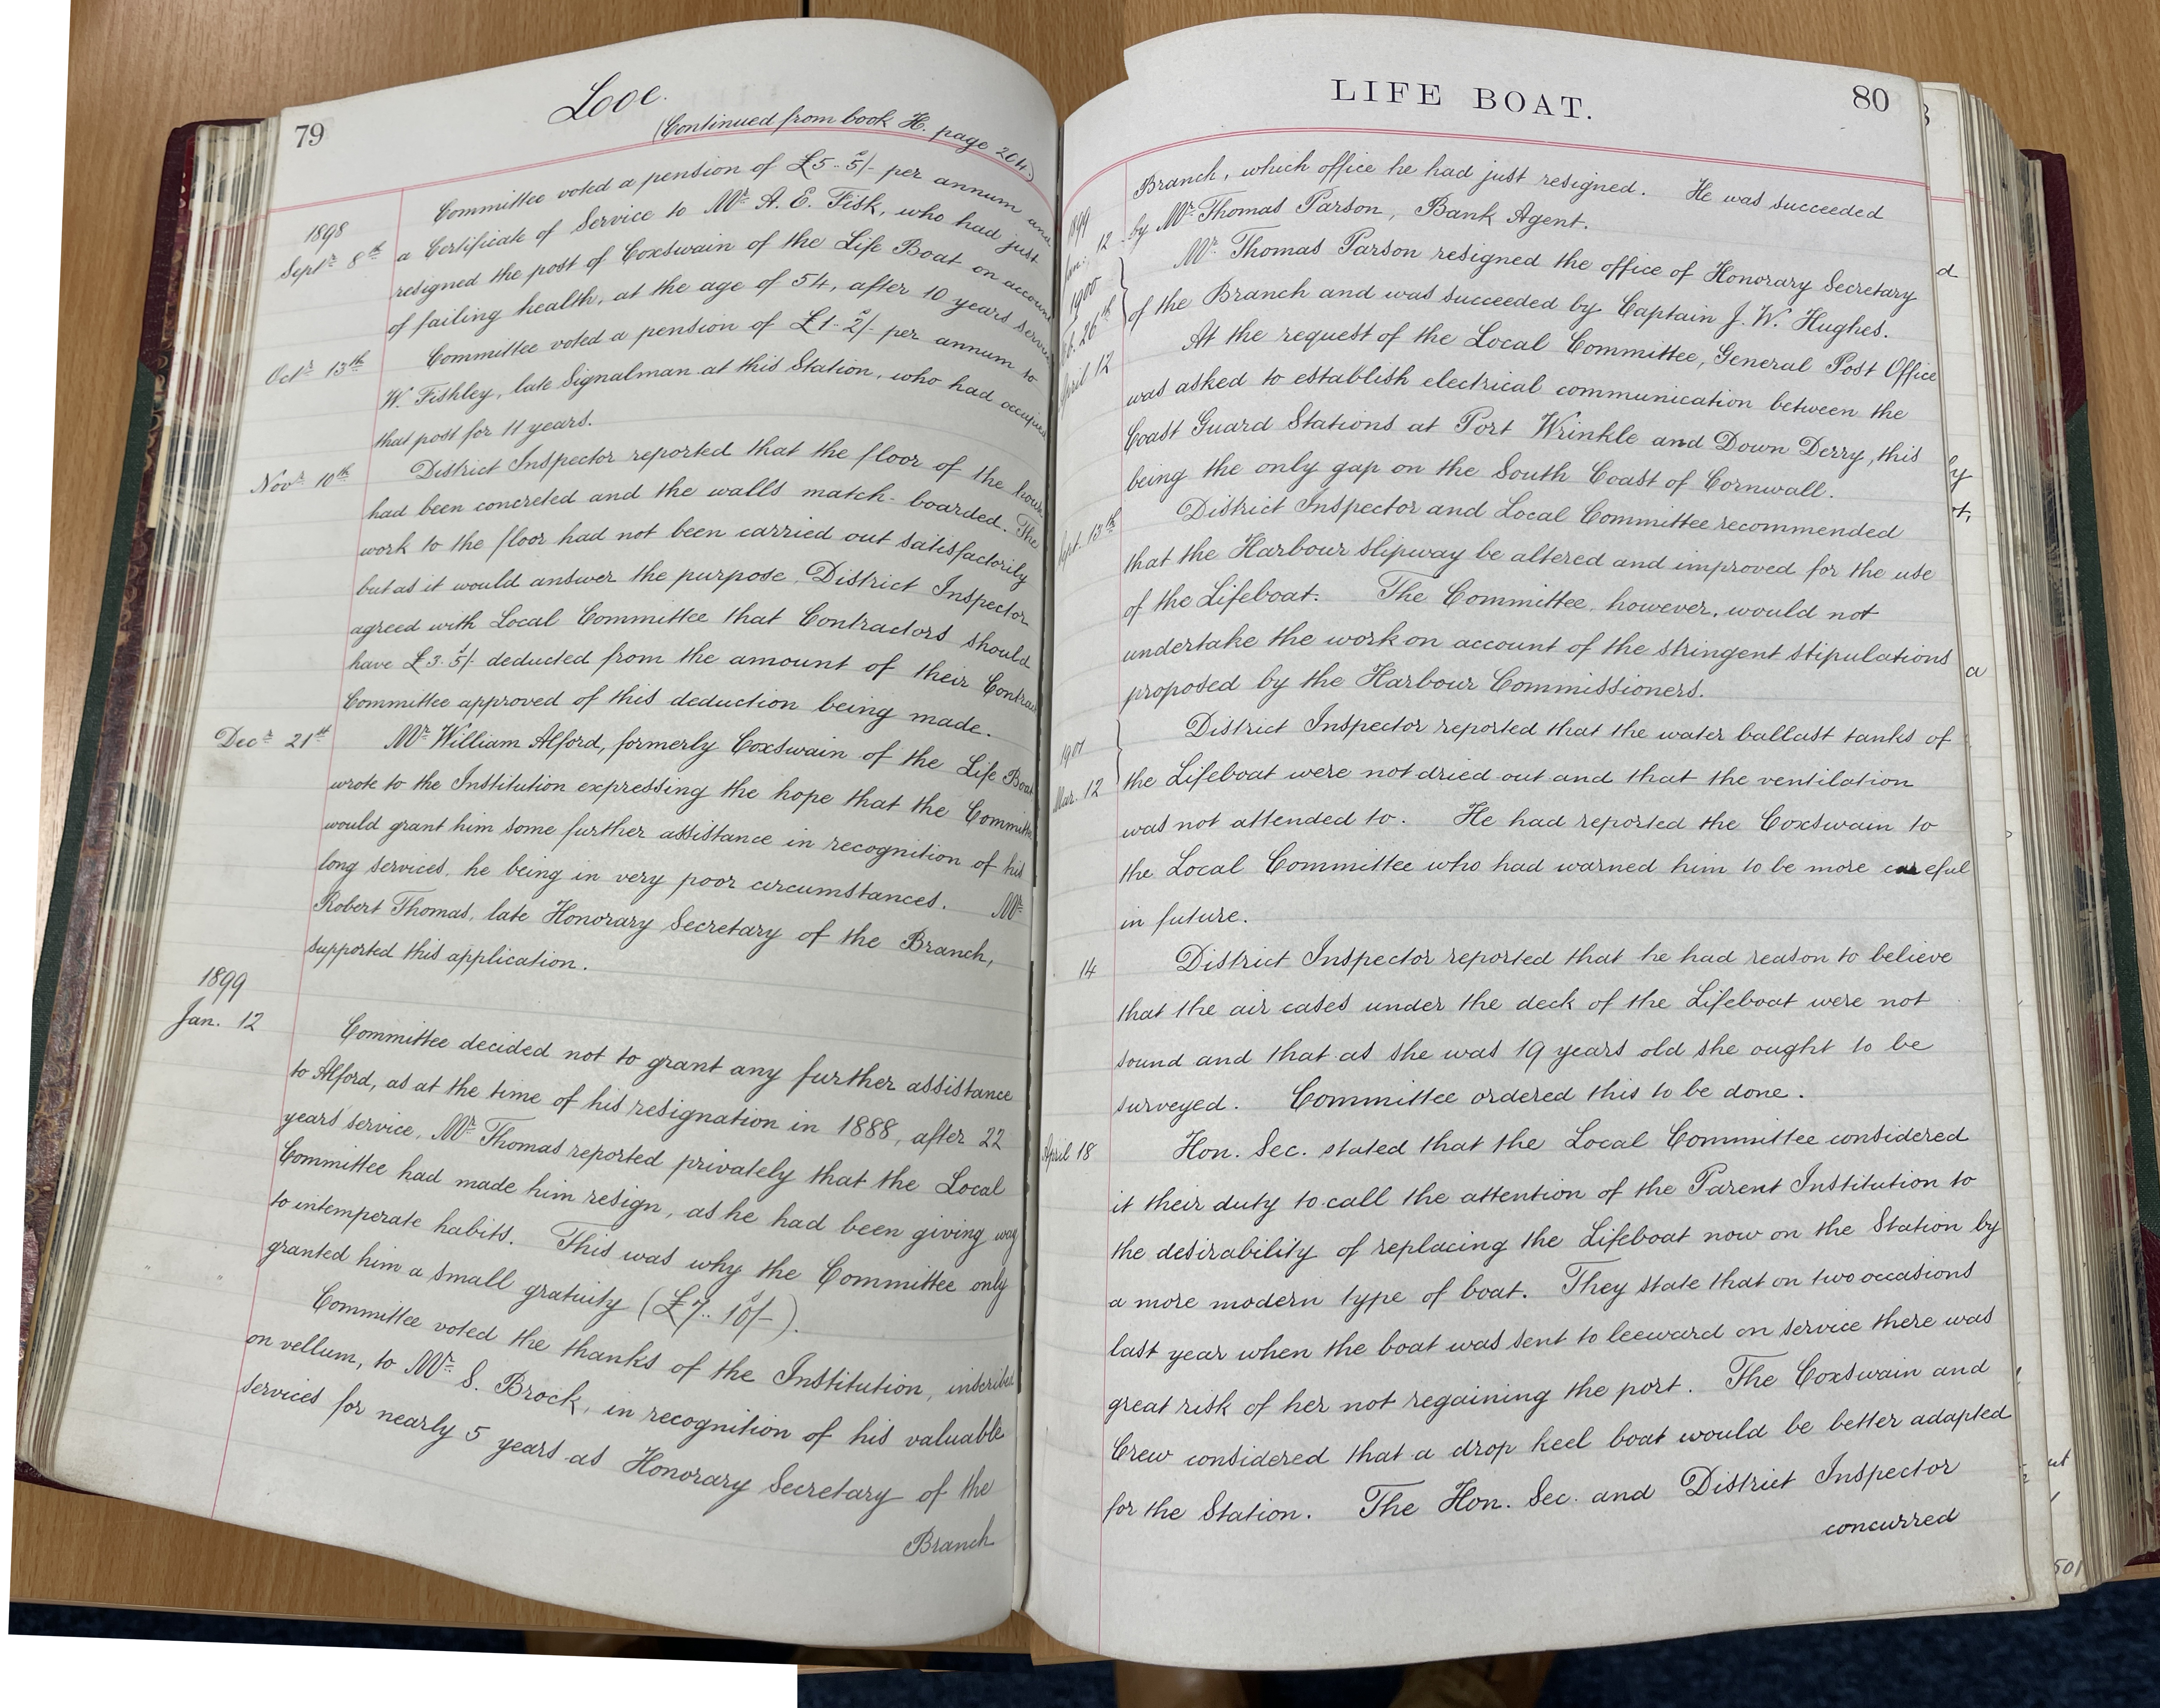 79
Looe.
(Continued from book H. page 204.)
1898
Septr 8th
Committee voted a pension of £5-5s/- per annum and
a Certificate of Service to Mr A. E. Fisk, who had just
resigned the post of Coxswain of the Life Boat on account
of failing health, at the age of 54, after 10 years service
Octr 13th
Committee voted a pension of £1-2s/- per annum to
W. Fishley, late Signalman at this Station, who had occupied
that post for 11 years.
Novr 10th
District Inspector reported that the floor of the house
had been concreted and the walls match-boarded. The
work to the floor had not been carried out satisfactorily
but as it would answer the purpose, District Inspector
agreed with Local Committee that Contractors should
have £3.5s/- deducted from the amount of their Contract
Committee approved of this deduction being made.
Decr 21st
Mr William Alford, formerly Coxswain of the Life Boat
wrote to the Institution expressing the hope that the Committee
would grant him some further assistance in recognition of his
long services, he being in very poor circumstances. Mr
Robert Thomas, late Honorary Secretary of the Branch,
supported this application.
1899
Jan. 12
Committee decided not to grant any further assistance
to Alford, as at the time of his resignation in 1888, after 22
years' service, Mr Thomas reported privately that the Local
Committee had made him resign, as he had been giving way
to intemperate habits. This was why the Committee only
granted him a small gratuity (£7..10s/-).
" "
Committee voted the thanks of the Institution, inscribed
on vellum, to Mr S. Brock, in recognition of his valuable
services for nearly 5 years as Honorary Secretary of the
Branch
LIFE BOAT.
80
1899
Jan. 12
Branch, which office he had just resigned. He was succeeded
by Mr Thomas Parson, Bank Agent.
1900
Feb. 26th
Mr Thomas Parson resigned the office of Honorary Secretary
of the Branch and was succeeded by Captain J. W. Hughes.
April 12
At the request of the Local Committee, General Post Office
was asked to establish electrical communication between the
Coast Guard Stations at Port Wrinkle and Down Derry, this
being the only gap on the South Coast of Cornwall.
Sept. 13th
District Inspector and Local Committee recommended
that the Harbour slipway be altered and improved for the use
of the Lifeboat. The Committee, however, would not
undertake the work on account of the stringent stipulations
proposed by the Harbour Commissioners.
1901
Mar. 12
District Inspector reported that the water ballast tanks of
the Lifeboat were not dried out and that the ventilation
was not attended to. He had reported the Coxswain to
the Local Committee who had warned him to be more careful
in future.
14
District Inspector reported that he had reason to believe
that the air cases under the deck of the Lifeboat were not
sound and that as she was 19 years old she ought to be
surveyed. Committee ordered this to be done.
April 18
Hon. Sec. stated that the Local Committee considered
it their duty to call the attention of the Parent Institution to
the desirability of replacing the Lifeboat now on the Station by
a more modern type of boat. They state that on two occasions
last year when the boat was sent to leeward on service there was
great risk of her not regaining the port. The Coxswain and
Crew considered that a drop keel boat would be better adapted
for the Station. The Hon. Sec. and District Inspector
concurred